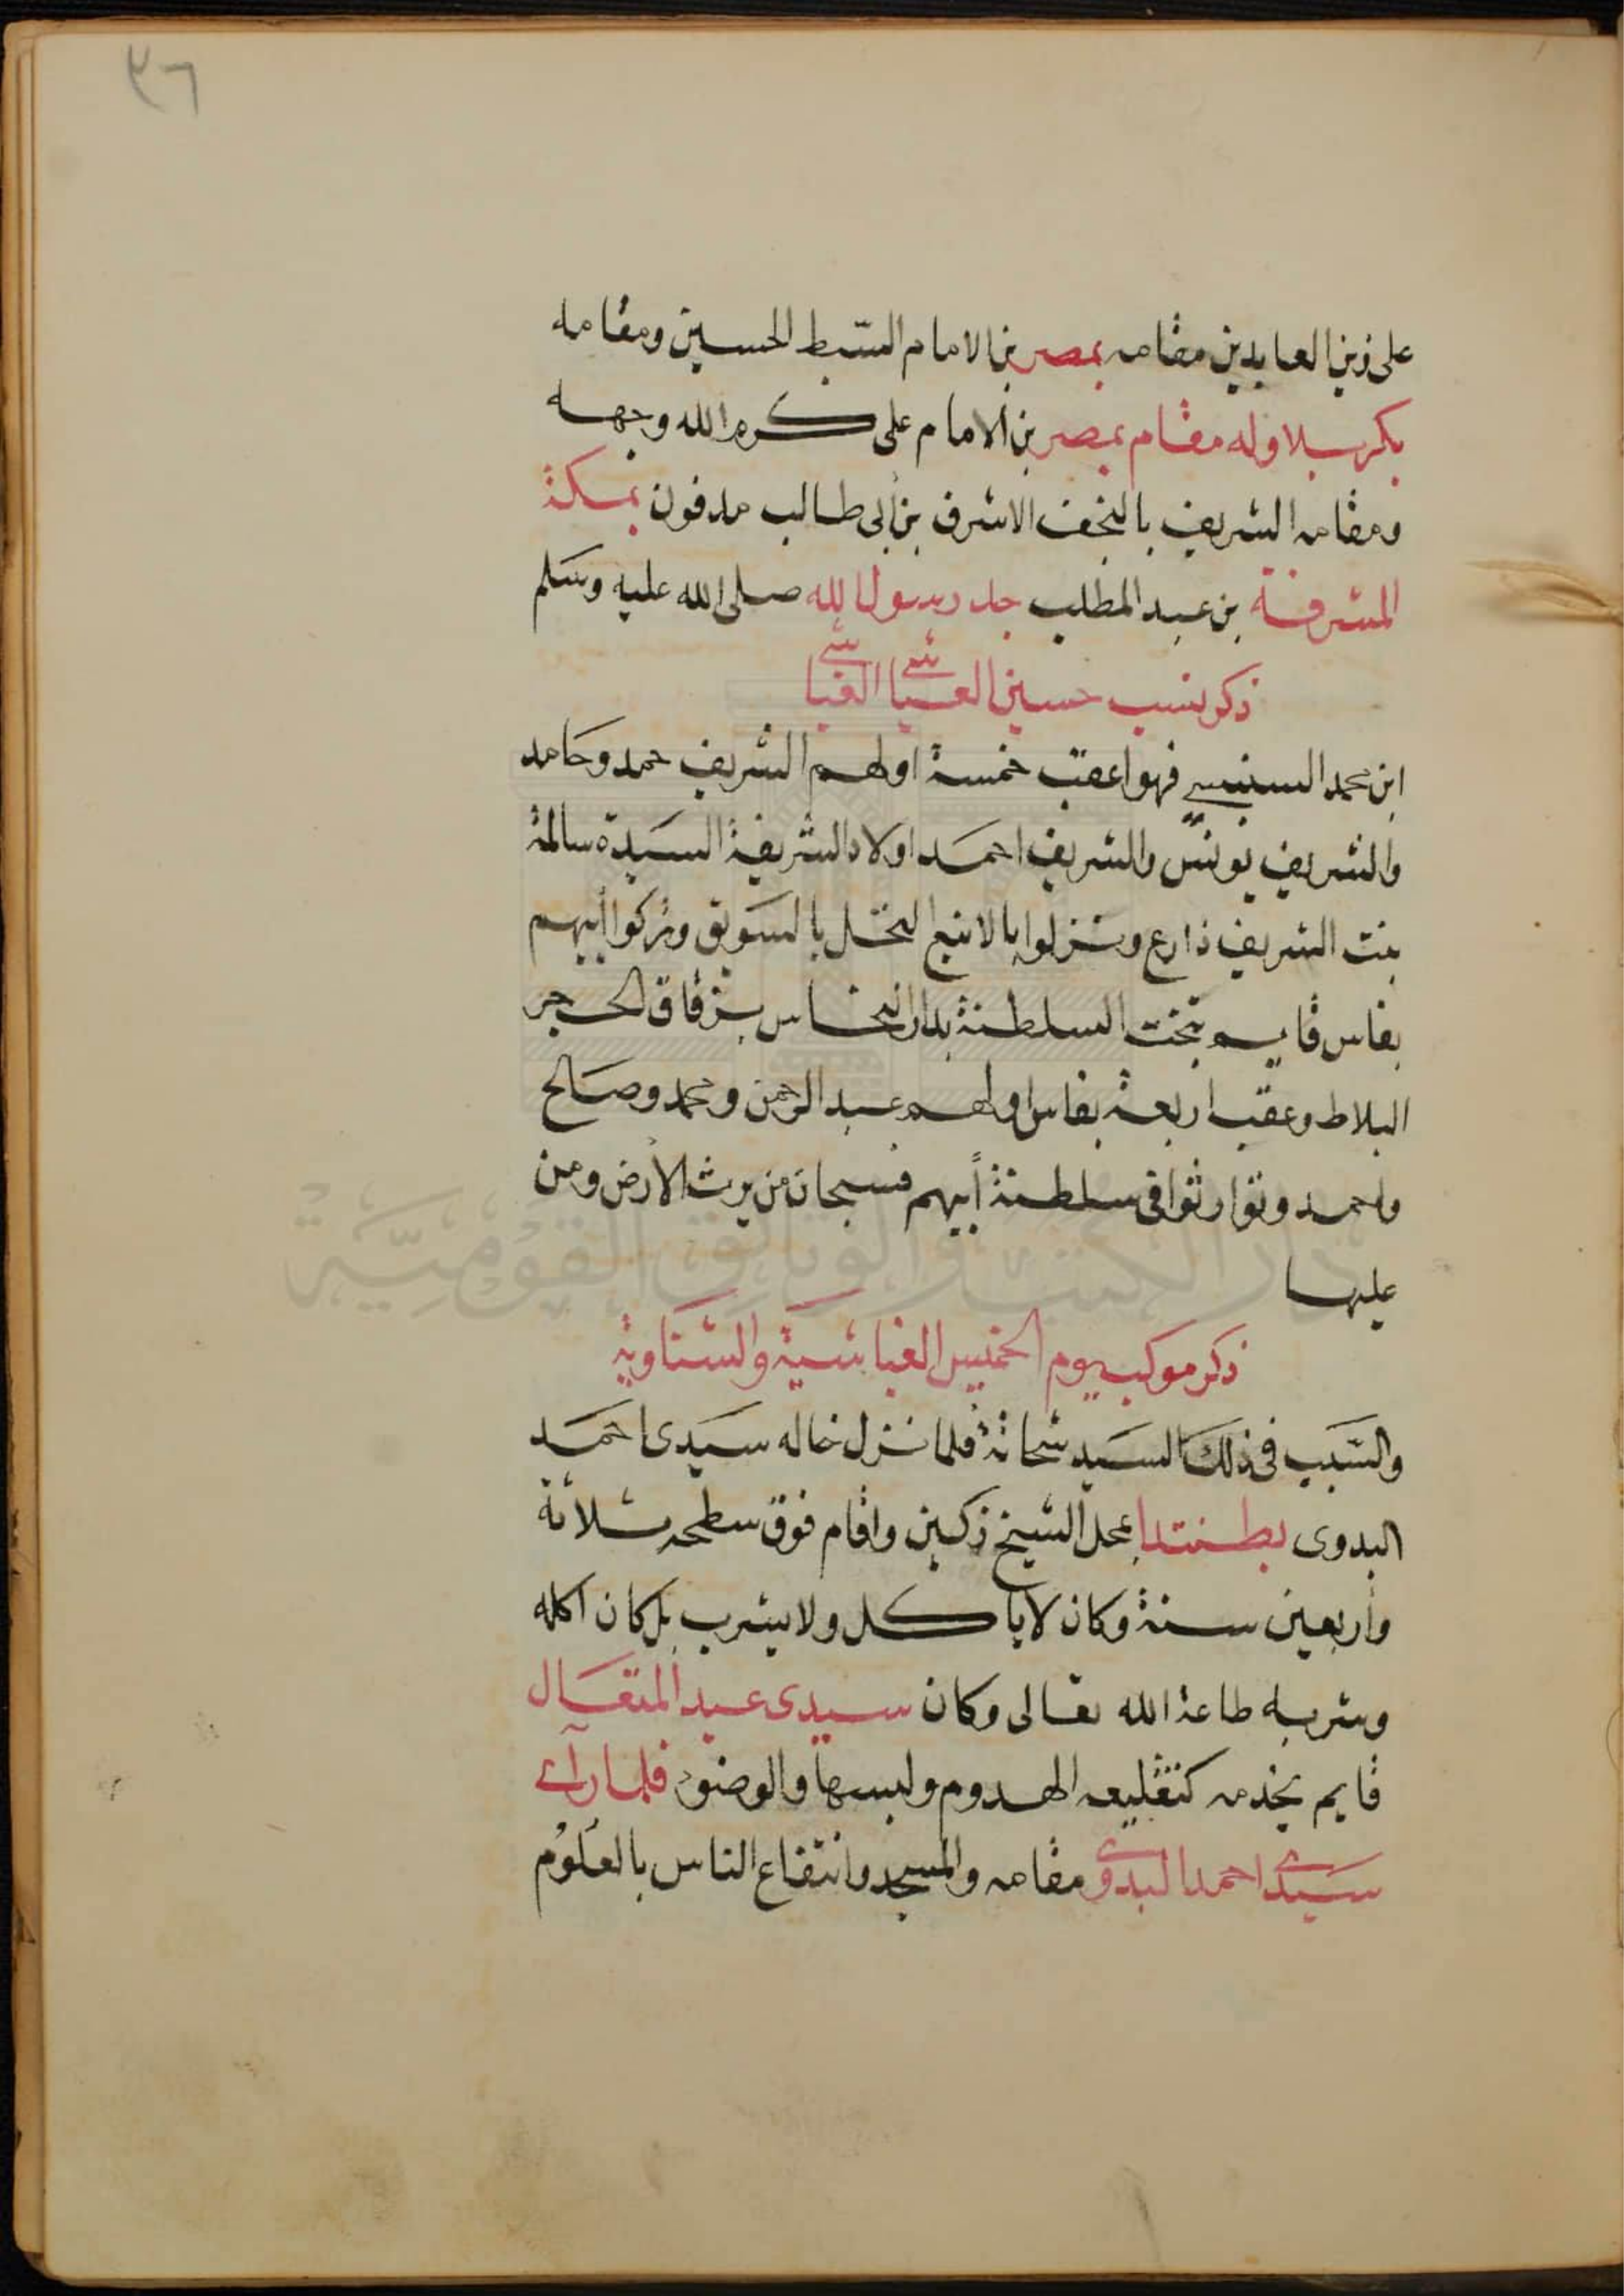 ٣٦
على زين العابدين مقامه بمصر بن الامام السبط الحسين ومقامه
بكربلا وله مقام بمصر بن الامام على كرم الله وجهه
ومقامه الشريف بالنجف الاشرف بن أبى طالب مدفون بمكة
المشرفة بن عبد المطلب جد رسول الله صلى الله عليه وسلم
ذكر نسب حسين العياشى الغباشى
ابن محمد السنبسى فهو اعقب خمسة اولهم الشريف حمد وحامد
والشريف يونس والشريف احمد اولاد الشريفة السيدة سالمة
بنت الشريف ذارع ونزلوا بالاينبع النخل بالسويق وتركوا أبيهم
بفاس قايم بتخت السلطنة بدار النحاس بزقاق الحجر
البلاط وعقب اربعة بفاس اولهم عبد الرحمن ومحمد وصالح
واحمد وتوارثوا فى سلطنة أبيهم فسبحان من يرث الأرض ومن
عليها
دار الكتب والوثائق القومية
ذكر موكب يوم الخميس الغباشية والشناوية
والسبب فى ذلك السيد شحاتة فلما نزل خاله سيدى احمد
البدوى بطنتدا بمحل الشيخ زكين واقام فوق سطحه ثلاثة
وأربعين سنة وكان لا يأكل ولا يشرب بل كان اكله
وشربه طاعة الله تعالى وكان سيدى عبد المتعال
قايم بخدمه كتقليعه الهدوم ولبسها والوضوء فلما رآى
سيدى احمد البدوى مقامه والمسجد وانتفاع الناس بالعلوم